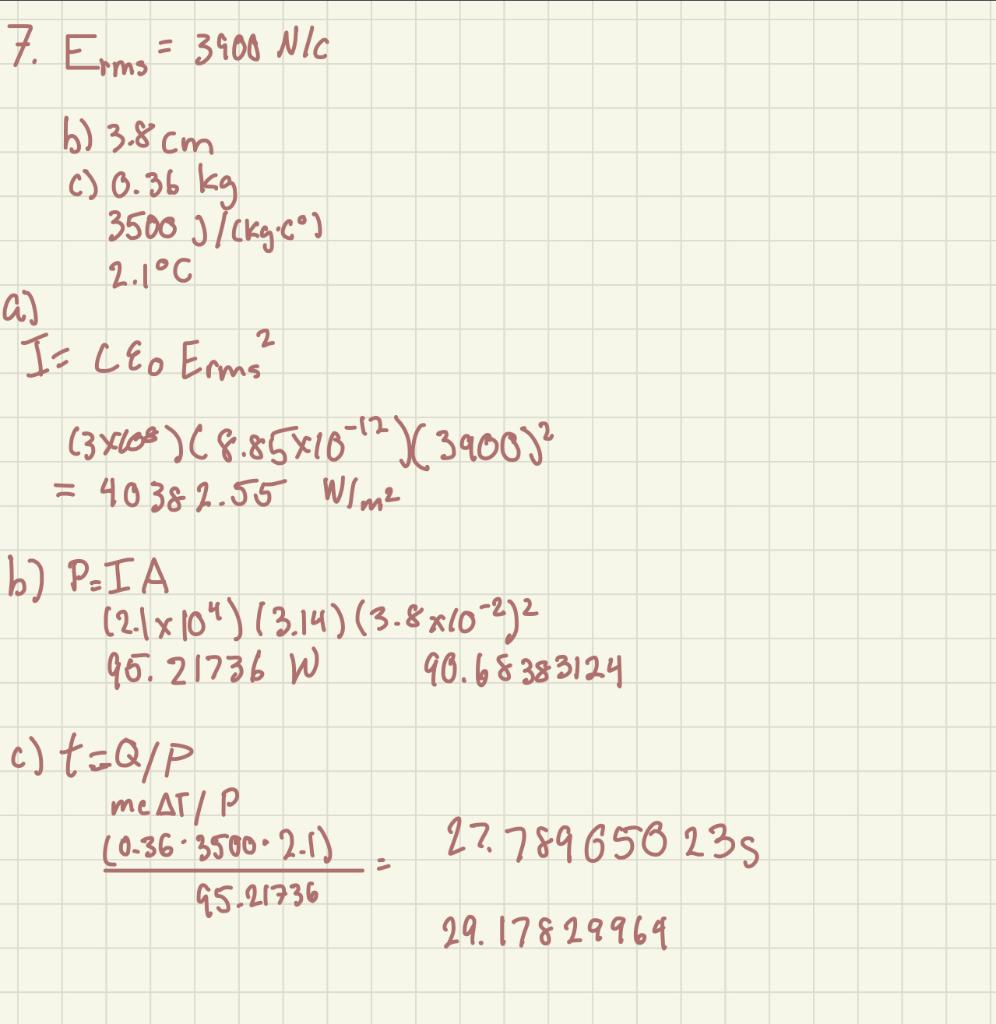 7. Erms = 3900 N/C
b) 3.8 cm
c) 0.36 kg
3500 J/(kg·C°)
2.1°C
a)
I = cε₀ Erms²
(3×10⁸)(8.85×10⁻¹²)(3900)²
= 40382.55 W/m²
b) P=IA
(2.1×10⁴)(3.14)(3.8×10⁻²)²
95.21736 W 90.68383124
c) t=Q/P
mcΔT/P
(0.36·3500·2.1)
= 27.78965023s
95.21736
29.17829964